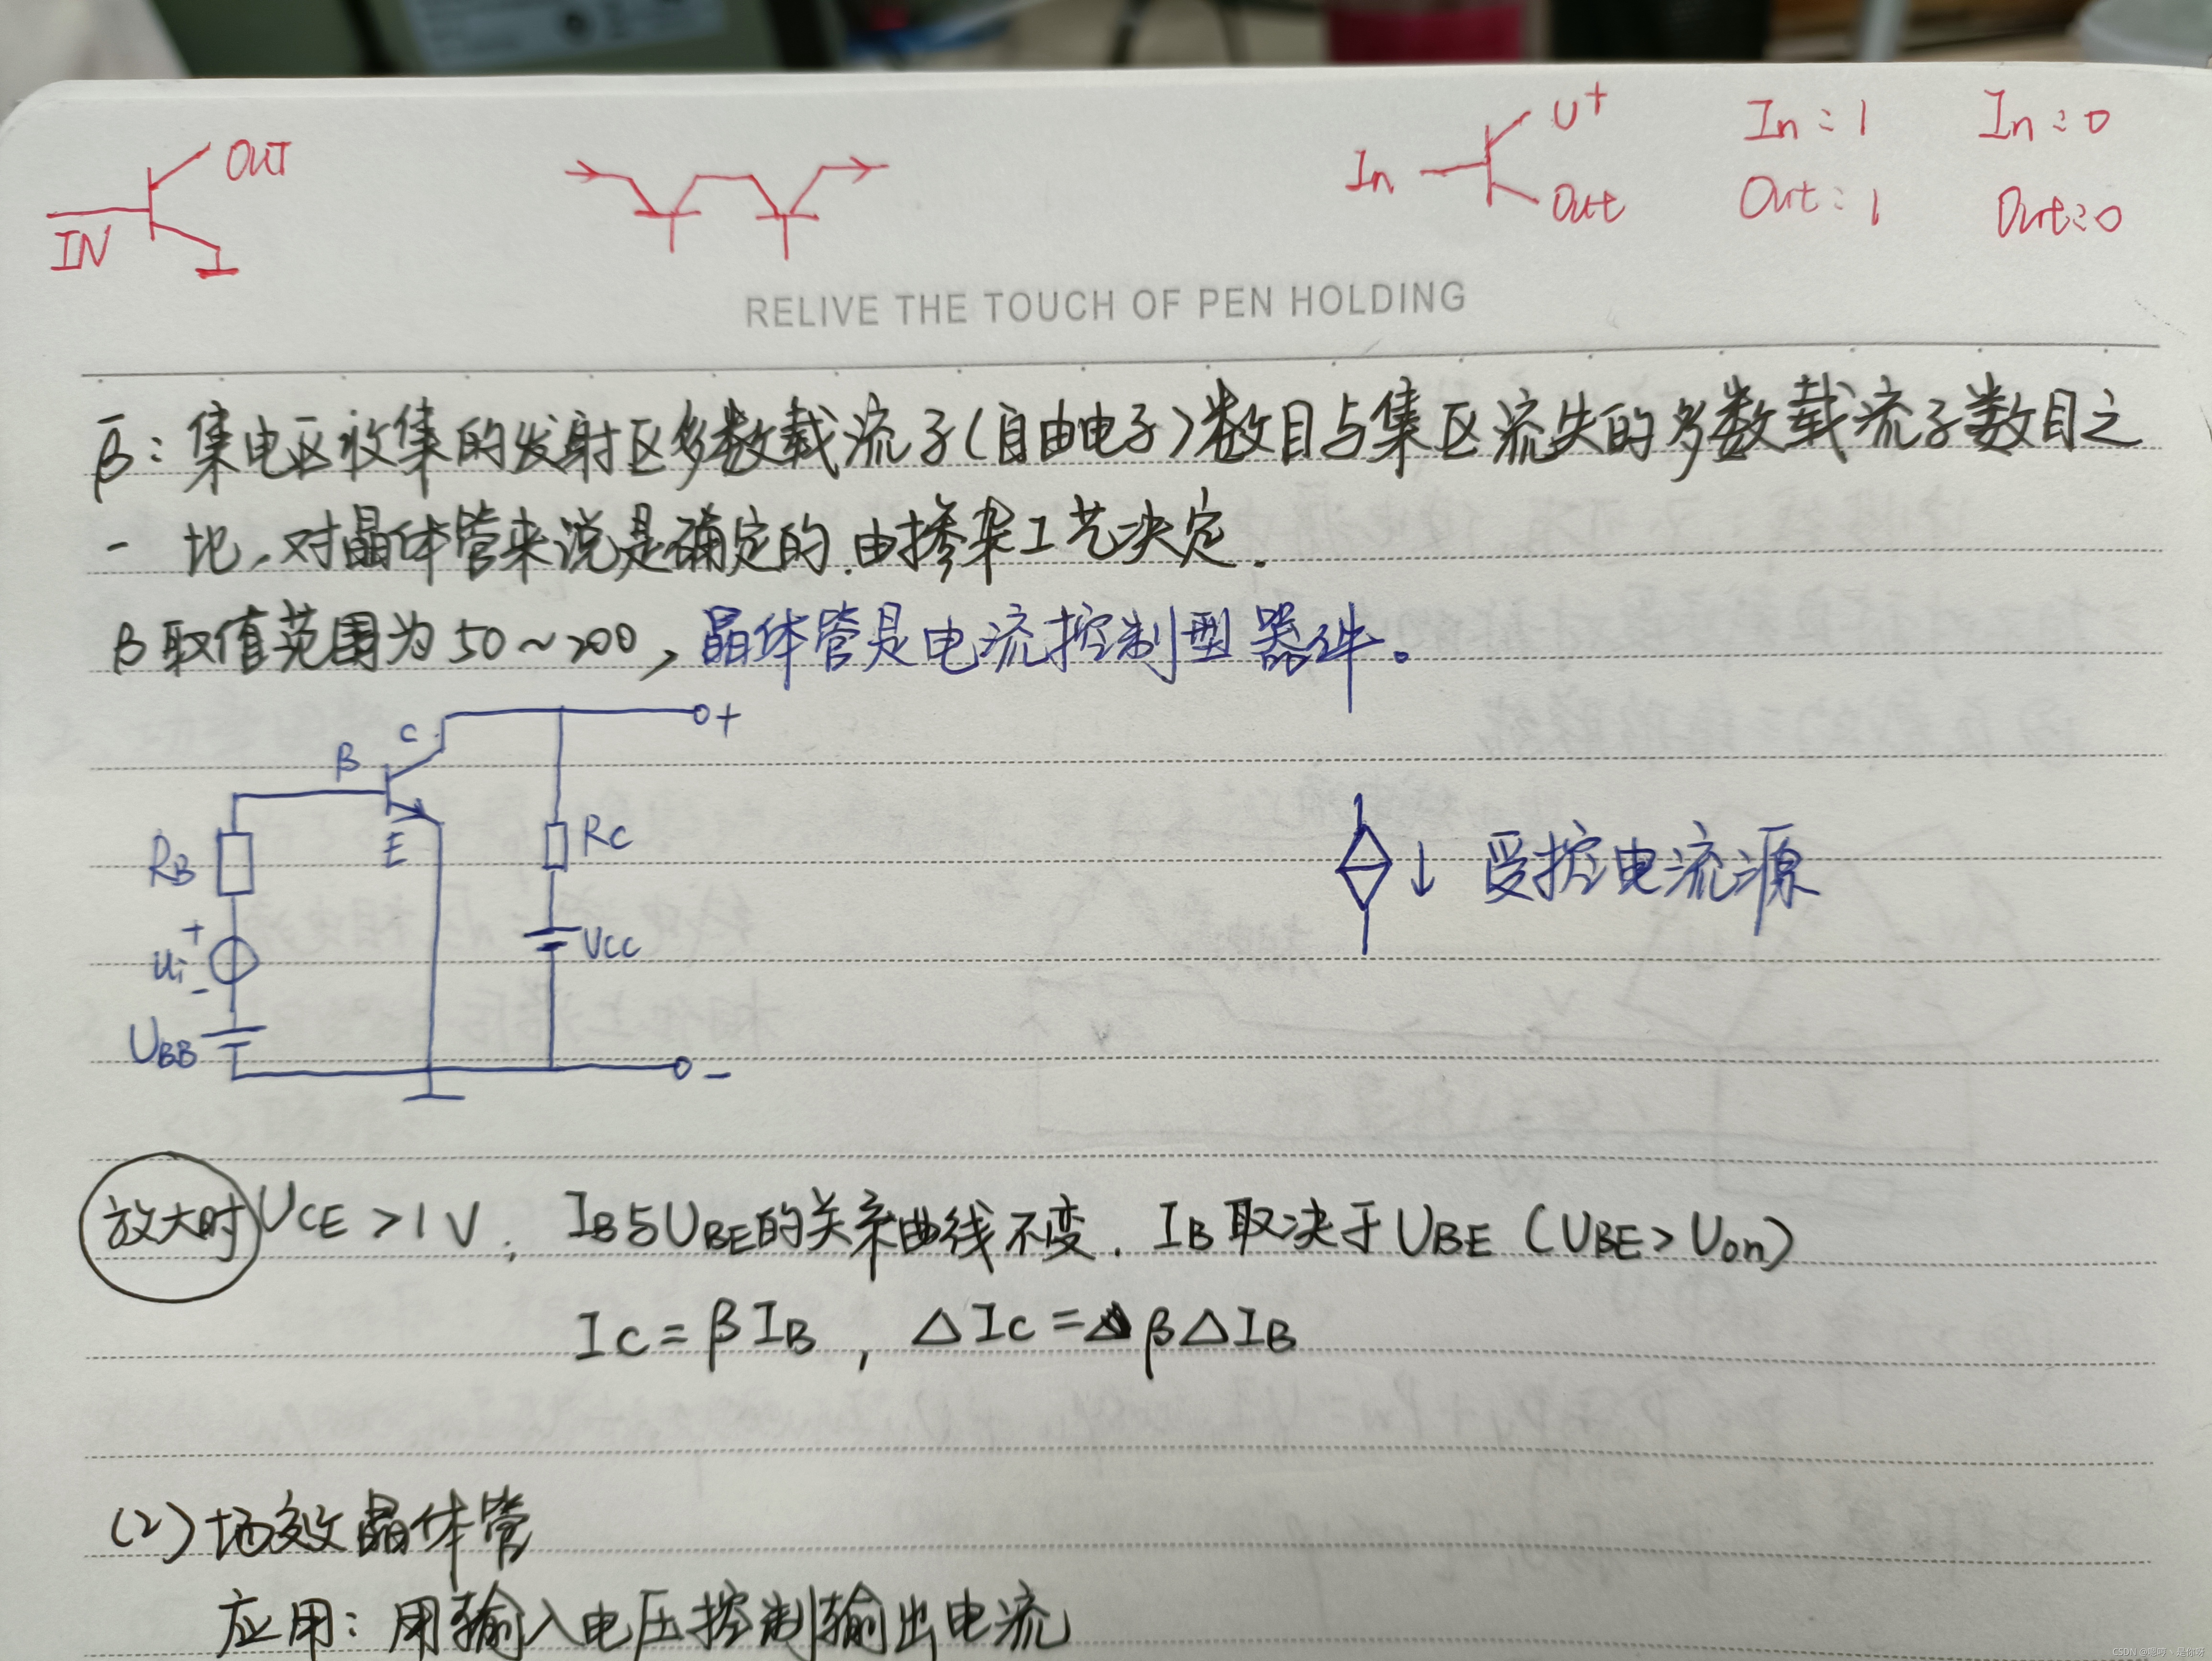 OUT
IN
In
U+
Out
In:1 In:0
Out:1 Out:0
RELIVE THE TOUCH OF PEN HOLDING
β̄:集电区收集的发射区多数载流子(自由电子)数目与集区流失的多数载流子数目之
一比,对晶体管来说是确定的.由掺杂工艺决定.
β取值范围为50~200,晶体管是电流控制型器件。
C
+
B
E
RB
RC
+
ui
-
VCC
UBB
-
↓ 受控电流源
放大时 UCE>1V, IB与UBE的关系曲线不变. IB取决于UBE(UBE>Uon)
IC=βIB, ΔIC=βΔIB
(2)场效晶体管
应用:用输入电压控制输出电流